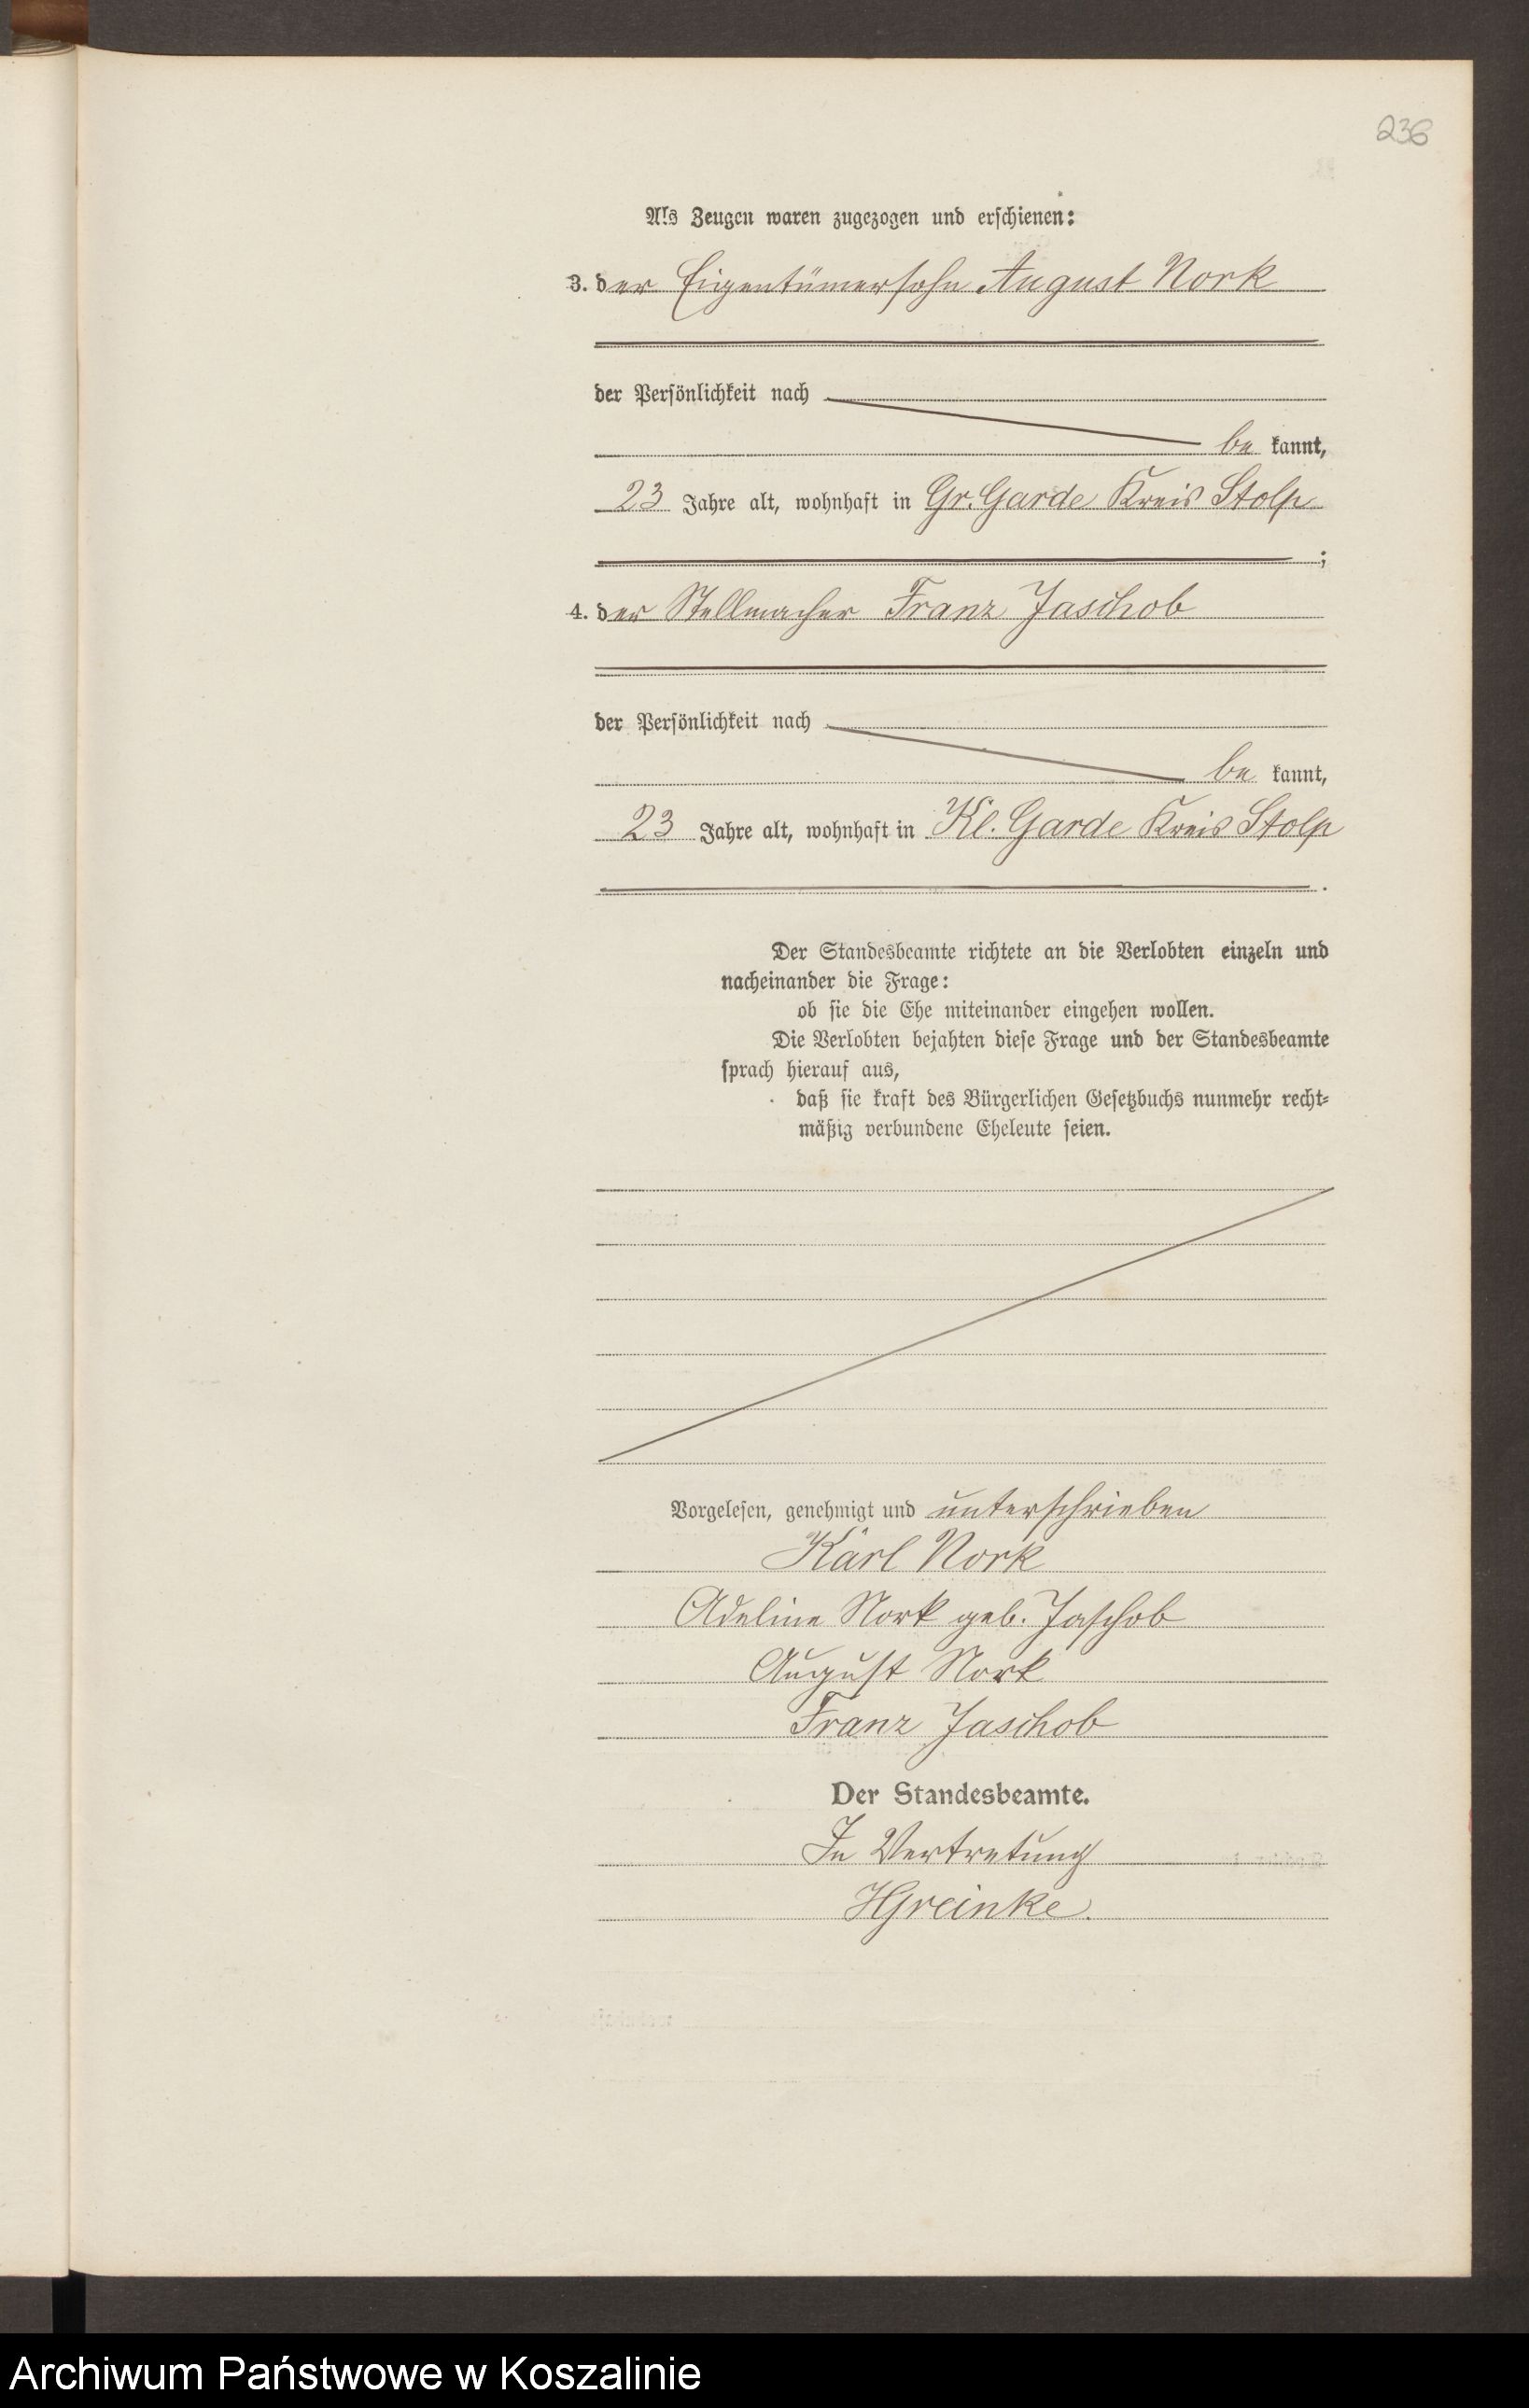 236
Als Zeugen waren zugezogen und erschienen:
3. der Eigentümersohn August Nork
der Persönlichkeit nach
be kannt,
23 Jahre alt, wohnhaft in Gr. Garde Kreis Stolp
;
4. der Stellmacher Franz Jaschob
der Persönlichkeit nach
be kannt,
23 Jahre alt, wohnhaft in Kl. Garde Kreis Stolp
.
Der Standesbeamte richtete an die Verlobten einzeln und
nacheinander die Frage:
ob sie die Ehe miteinander eingehen wollen.
Die Verlobten bejahten diese Frage und der Standesbeamte
sprach hierauf aus,
daß sie kraft des Bürgerlichen Gesetzbuchs nunmehr recht-
mäßig verbundene Eheleute seien.
Vorgelesen, genehmigt und unterschrieben
Karl Nork
Adeline Nork geb. Jaschob
August Nork
Franz Jaschob
Der Standesbeamte.
In Vertretung
HGreinke.
Archiwum Państwowe w Koszalinie